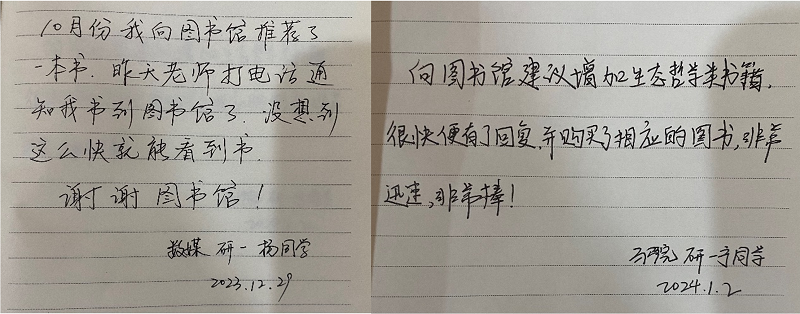 10月份我向图书馆推荐了
一本书.昨天老师打电话通
知我书到图书馆了.没想到
这么快就能看到书.
谢谢图书馆！
数媒 研一 杨同学
2023.12.29
向图书馆建议增加生态哲学类书籍,
很快便有了回复,并购买了相应的图书,非常
迅速,非常棒!
研一 同学
2024.1.2